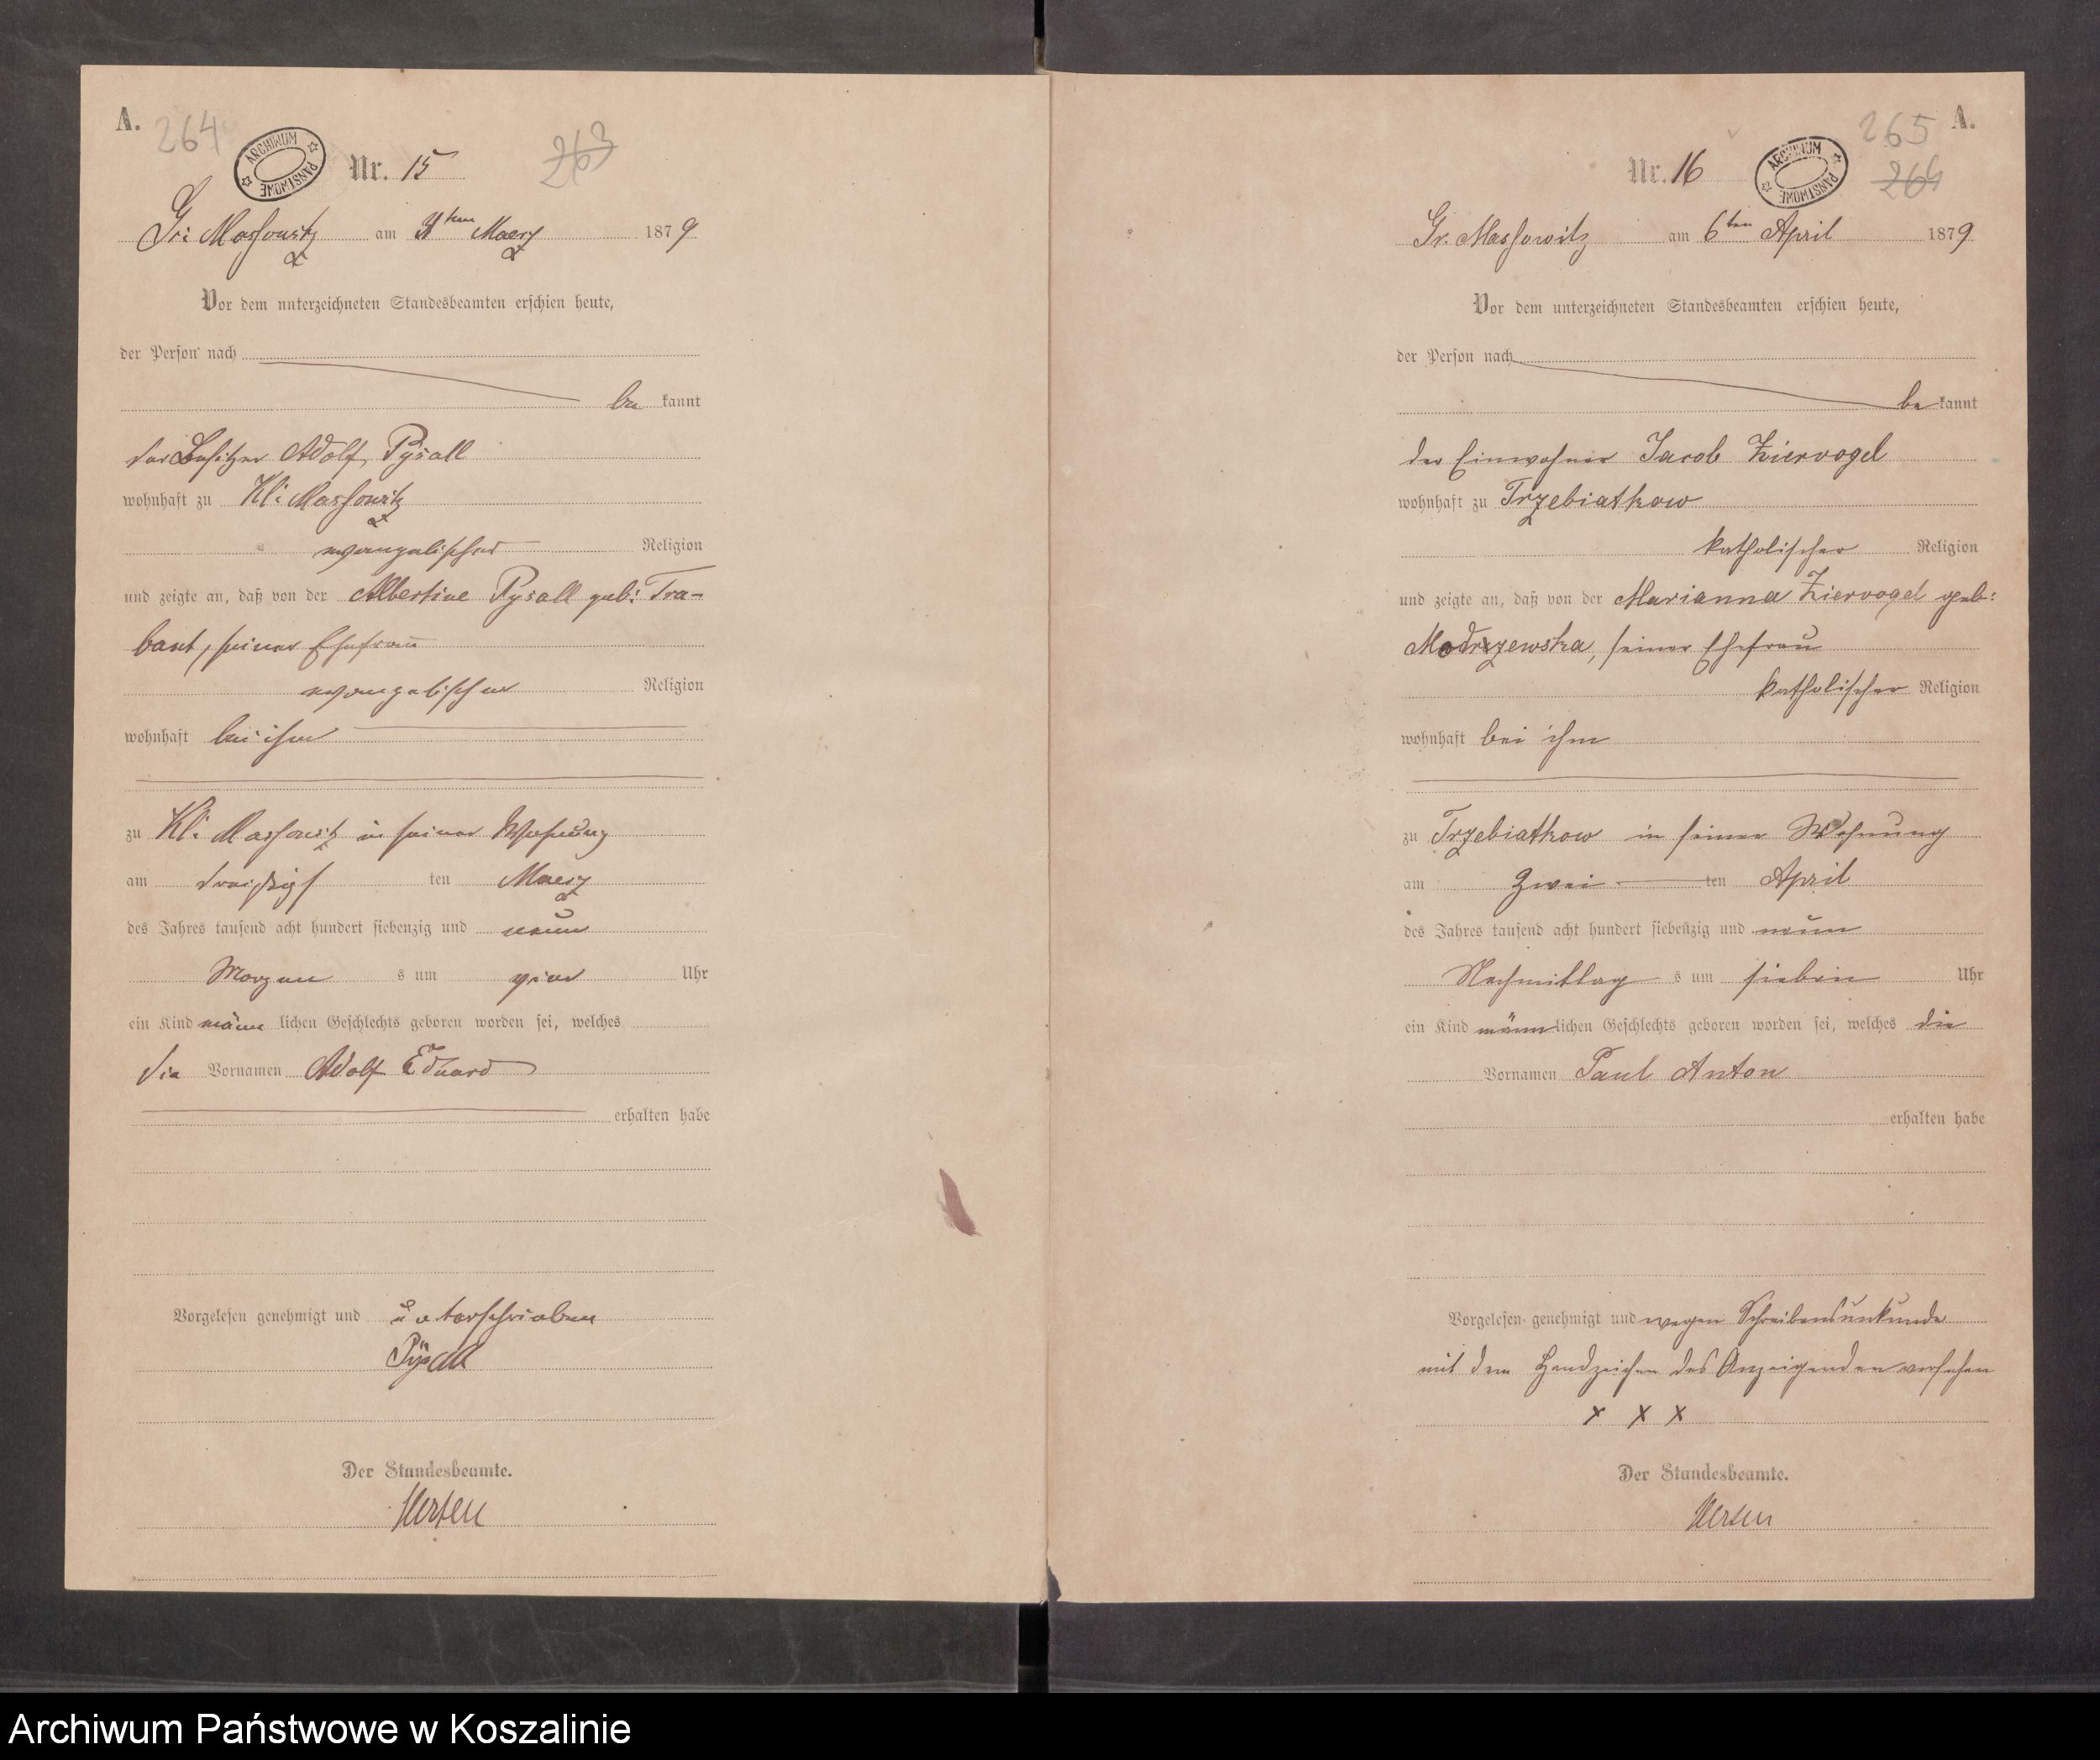 A.
264
ARCHIWUM PAŃSTWOWE
Nr. 15
263
Gr: Massowitz am 31ten Maerz 1879
Vor dem unterzeichneten Standesbeamten erschien heute,
der Person nach
be kannt
der Besitzer Adolf Pÿsall
wohnhaft zu Kl: Massowitz
evangelischer Religion
und zeigte an, daß von der Albertine Pysall geb: Tra-
bant, seiner Ehefrau
evangelischer Religion
wohnhaft bei ihm
zu Kl: Massowitz in seiner Wohnung
am dreißigs ten Maerz
des Jahres tausend acht hundert siebenzig und neun
Morgen s um vier Uhr
ein Kind männ lichen Geschlechts geboren worden sei, welches
die Vornamen Adolf Eduard
erhalten habe
Vorgelesen genehmigt und unterschrieben
Pÿsall
Der Standesbeamte.
A.
265
Nr. 16
ARCHIWUM PAŃSTWOWE
264
Gr. Massowitz am 6ten April 1879
Vor dem unterzeichneten Standesbeamten erschien heute,
der Person nach
be kannt
der Einwohner Jacob Ziervogel
wohnhaft zu Trzebiatkow
katholischer Religion
und zeigte an, daß von der Marianna Ziervogel geb:
Modrzewska, seiner Ehefrau
katholischer Religion
wohnhaft bei ihm
zu Trzebiatkow in seiner Wohnung
am zwei ten April
des Jahres tausend acht hundert siebenzig und neun
Nachmittag s um sieben Uhr
ein Kind männ lichen Geschlechts geboren worden sei, welches die
Vornamen Paul Anton
erhalten habe
Vorgelesen genehmigt und wegen Schreibensunkunde
mit dem Handzeichen des Anzeigenden versehen
x x x
Der Standesbeamte.
Archiwum Państwowe w Koszalinie